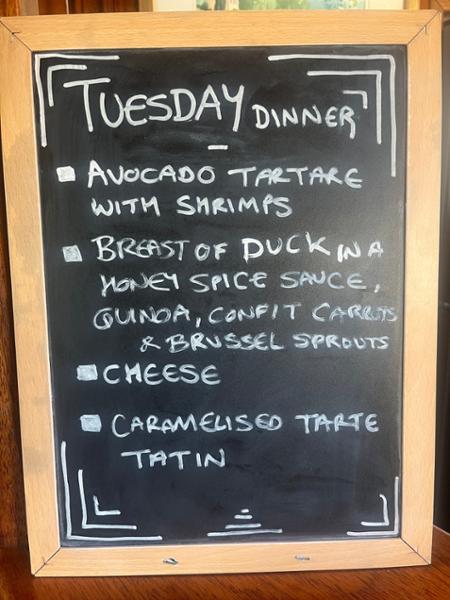 TUESDAY DINNER
AVOCADO TARTARE
WITH SHRIMPS
BREAST OF DUCK IN A
HONEY SPICE SAUCE,
QUINOA, CONFIT CARROTS
& BRUSSEL SPROUTS
CHEESE
CARAMELISED TARTE
TATIN